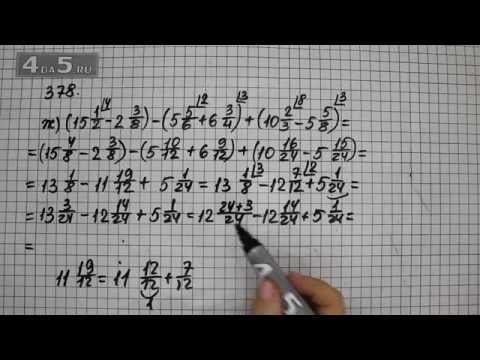 4DA5.RU
378.
ж) (15 1/2 |4 - 2 3/8) - (5 5/6 |2 + 6 3/4 |3) + (10 2/3 |8 - 5 5/8 |3) =
= (15 4/8 - 2 3/8) - (5 10/12 + 6 9/12) + (10 16/24 - 5 15/24) =
= 13 1/8 - 11 19/12 + 5 1/24 = 13 1/8 |3 - 12 7/12 |2 + 5 1/24 =
= 13 3/24 - 12 14/24 + 5 1/24 = 12 24+3/24 - 12 14/24 + 5 1/24 =
=
11 19/12 = 11 12/12 + 7/12
1
4 5